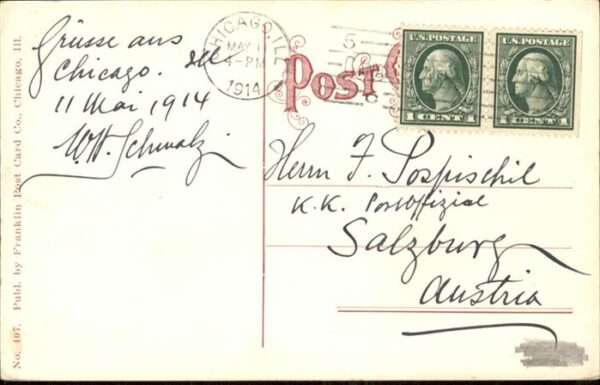 Grüsse aus
Chicago. Ill
11 Mai 1914
W.H. Schwalz
CHICAGO, ILL.
MAY 11
4-PM
1914
5
POST
U.S. POSTAGE
1 CENT 1
U.S. POSTAGE
1 CENT 1
Herrn F. Pospischil
K.K. Postoffizial
Salzburg
Austria
No. 407. Publ. by Franklin Post Card Co., Chicago, Ill.